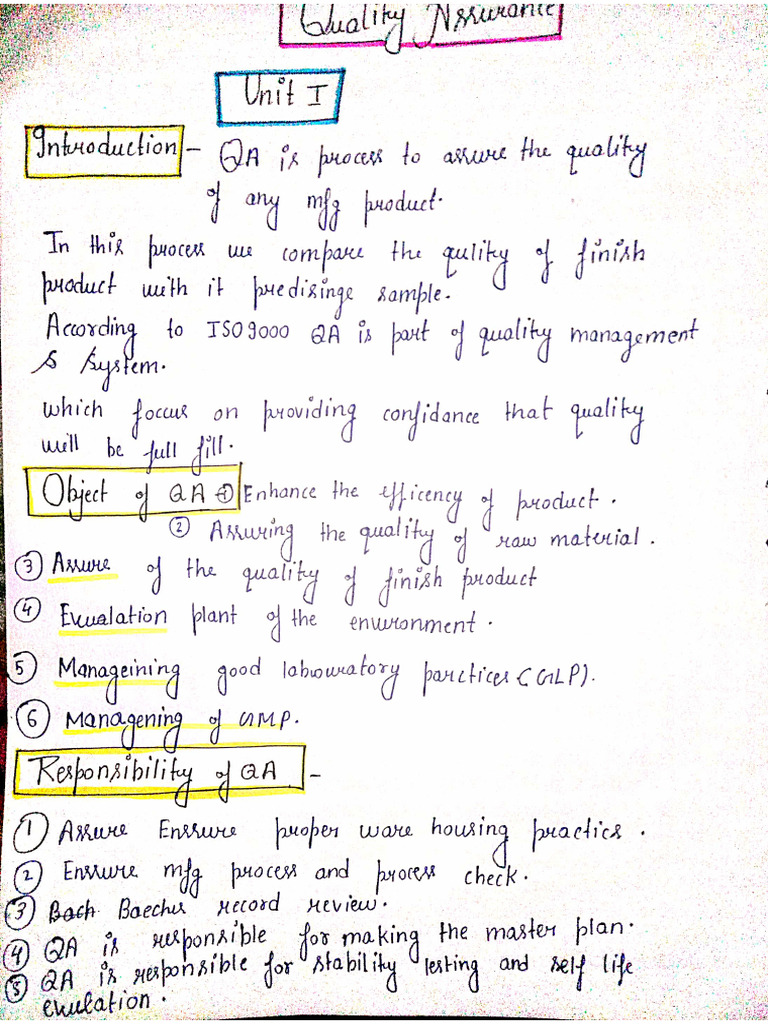 Quality Assurance
Unit I
Introduction - QA is process to assure the quality
of any mfg product.
In this process we compare the qulity of finish
product with it predisinge sample.
According to ISO9000 QA is part of quality management
S System.
which foccus on providing confidance that quality
will be full fill.
Object of QA → ① Enhance the efficency of product.
② Assuring the quality of raw material.
③ Assure of the quality of finish product
④ Evaulation plant of the environment.
⑤ Manageining good labouratory parctices (GLP).
⑥ Managening of GMP.
Responsibility of QA -
① Assure Enssure proper ware housing practics.
② Enssure mfg process and process check.
③ Bach Baeches record review.
④ QA is responsible for making the master plan.
⑤ QA is responsible for stability testing and self life
evulation.